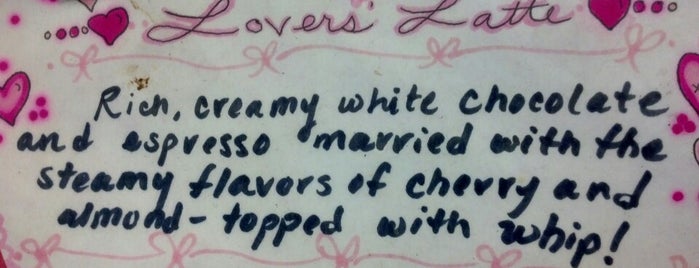 Lovers' Latte
Rich, creamy white chocolate
and espresso married with the
steamy flavors of cherry and
almond - topped with whip!